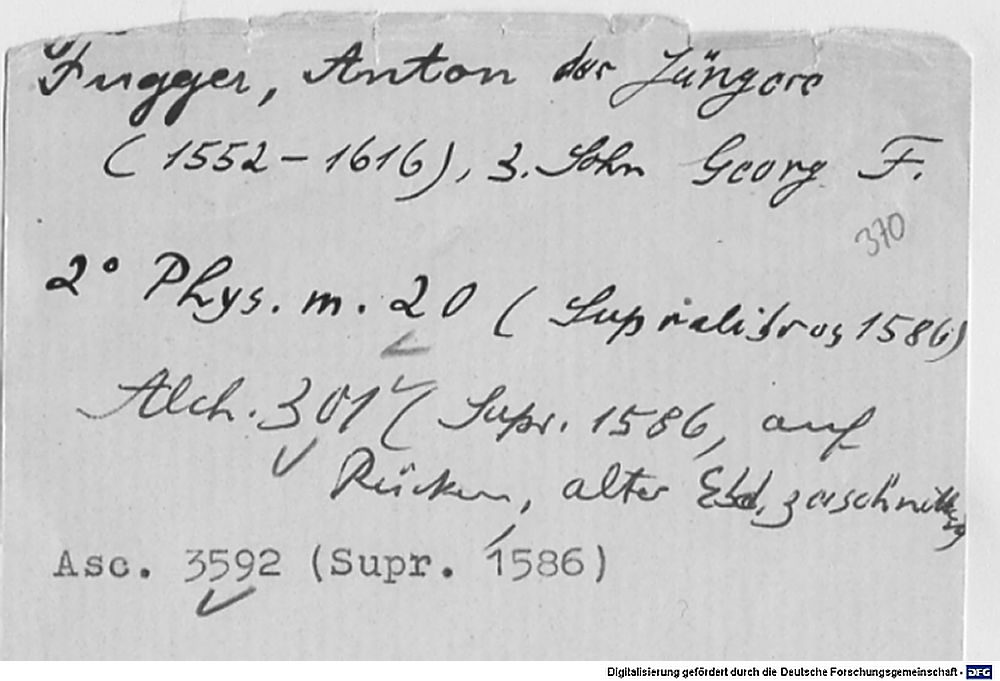 Fugger, Anton der Jüngere
(1552-1616), 3. Sohn Georg F.
370
2° Phys. m. 20 (Supralibros 1586)
Alch. 301 (Supr. 1586, auf
Rücken, alter Ebd. zerschnitten)
Asc. 3592 (Supr. 1586)
Digitalisierung gefördert durch die Deutsche Forschungsgemeinschaft - DFG